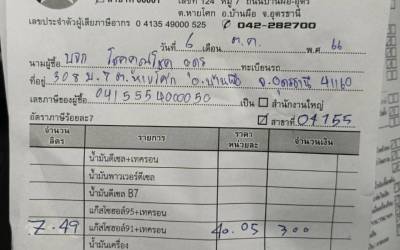 สาขาที่ 00001 เลขที่ 124 หมู่ 7 ถนนบ้านผือ-อุดร
ต.หายโศก อ.บ้านผือ จ.อุดรธานี
เลขประจำตัวผู้เสียภาษีอากร 0 4135 49000 525 042-282700
วันที่ 6 เดือน ต.ค. พ.ศ. 66
นามผู้ซื้อ บจก โชคคูณโชค อุดร ทะเบียนรถ
ที่อยู่ 308 ม.7 ต.หายโศก อ.บ้านผือ จ.อุดรธานี 41160
เลขภาษีของผู้ซื้อ 0415551000050 เป็น สำนักงานใหญ่
อัตราภาษีร้อยละ7 สาขาที่ 04155
จำนวนลิตร รายการ ราคาหน่วยละ จำนวนเงิน
น้ำมันดีเซล+เทครอน
น้ำมันพาวเวอร์ดีเซล
น้ำมันดีเซล B7
แก๊สโซฮอล์95+เทครอน
7.49 แก๊สโซฮอล์91+เทครอน 40.05 300
น้ำมันเครื่อง